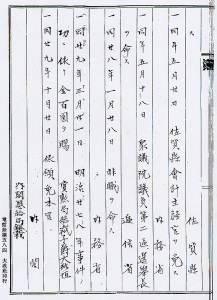 佐賀縣
一同年五月廿八日 佐賀縣會計主務官ヲ免ス
一同年五月十八日 衆議院議員第二區選擧長
ヲ命ス
遞信省
一同廿八年一月廿八日 非職ヲ命ス
外務省
一同廿九年三月一日 明治廿七八年事件ノ
功ニ依リ金百圓ヲ賜フ 賞勲局總裁子爵大給恒
一同廿九年十月廿日 依願免本官
内閣
内閣恩給局